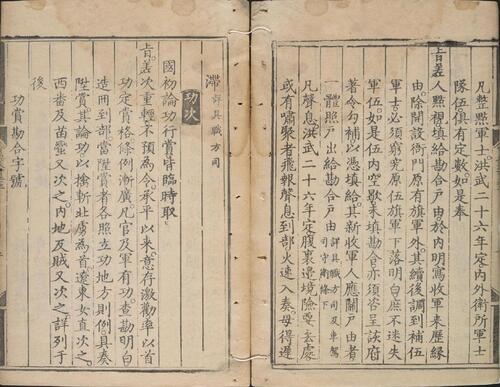 凡整點軍士洪武二十六年定內外衛所軍士
隊伍俱有定數如是奉
旨差人點視填給勘合戶由於內明寫收軍來歷緣
由除開設衙門原有旗軍外其續後調到補伍
軍士必須窮究原伍旗軍下落明白庶不迷失
軍伍如是伍內空歇未填勘合亦須咨呈該府
著令勾補以憑填給其新收軍人應關戶由者
一體照戶出給勘合戶由詳具職方司及車駕司守衛條下
凡聲息洪武二十六年定腹裏邊境險要去處
或有嘯聚者飛報聲息到部火速入奏毋得遲
滯詳具職方司
功次
國初論功行賞皆臨時取
旨差次重輕不預為令承平以來意存激勸率以首
功定賞格條例漸廣凡官及軍有功查勘明白
造冊到部當陞賞者照立功地方則例具奏
陞賞其論功以擒斬北虜為首遼東女直次之
西番及苗蠻又次之內地反賊又次之詳列于
後
功賞勘合字號